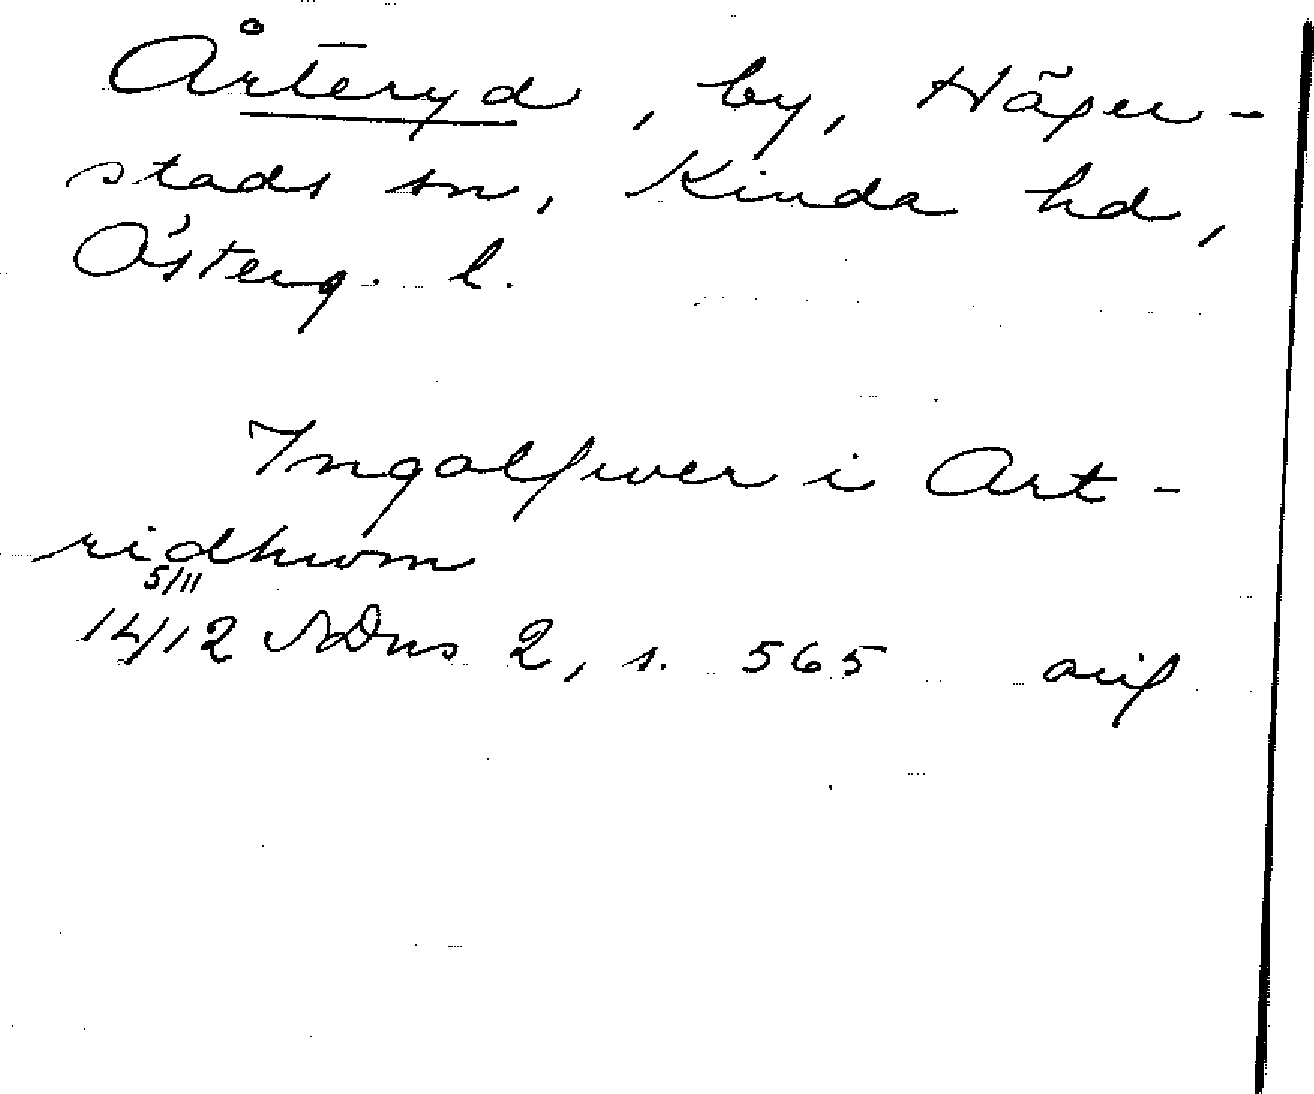 Årteryd, by, Häger-
stads sn, Kinda hd,
Österg. l.
Ingolfwer i Art-
ridhwm
5/11
1412 SDns 2, s. 565 avs